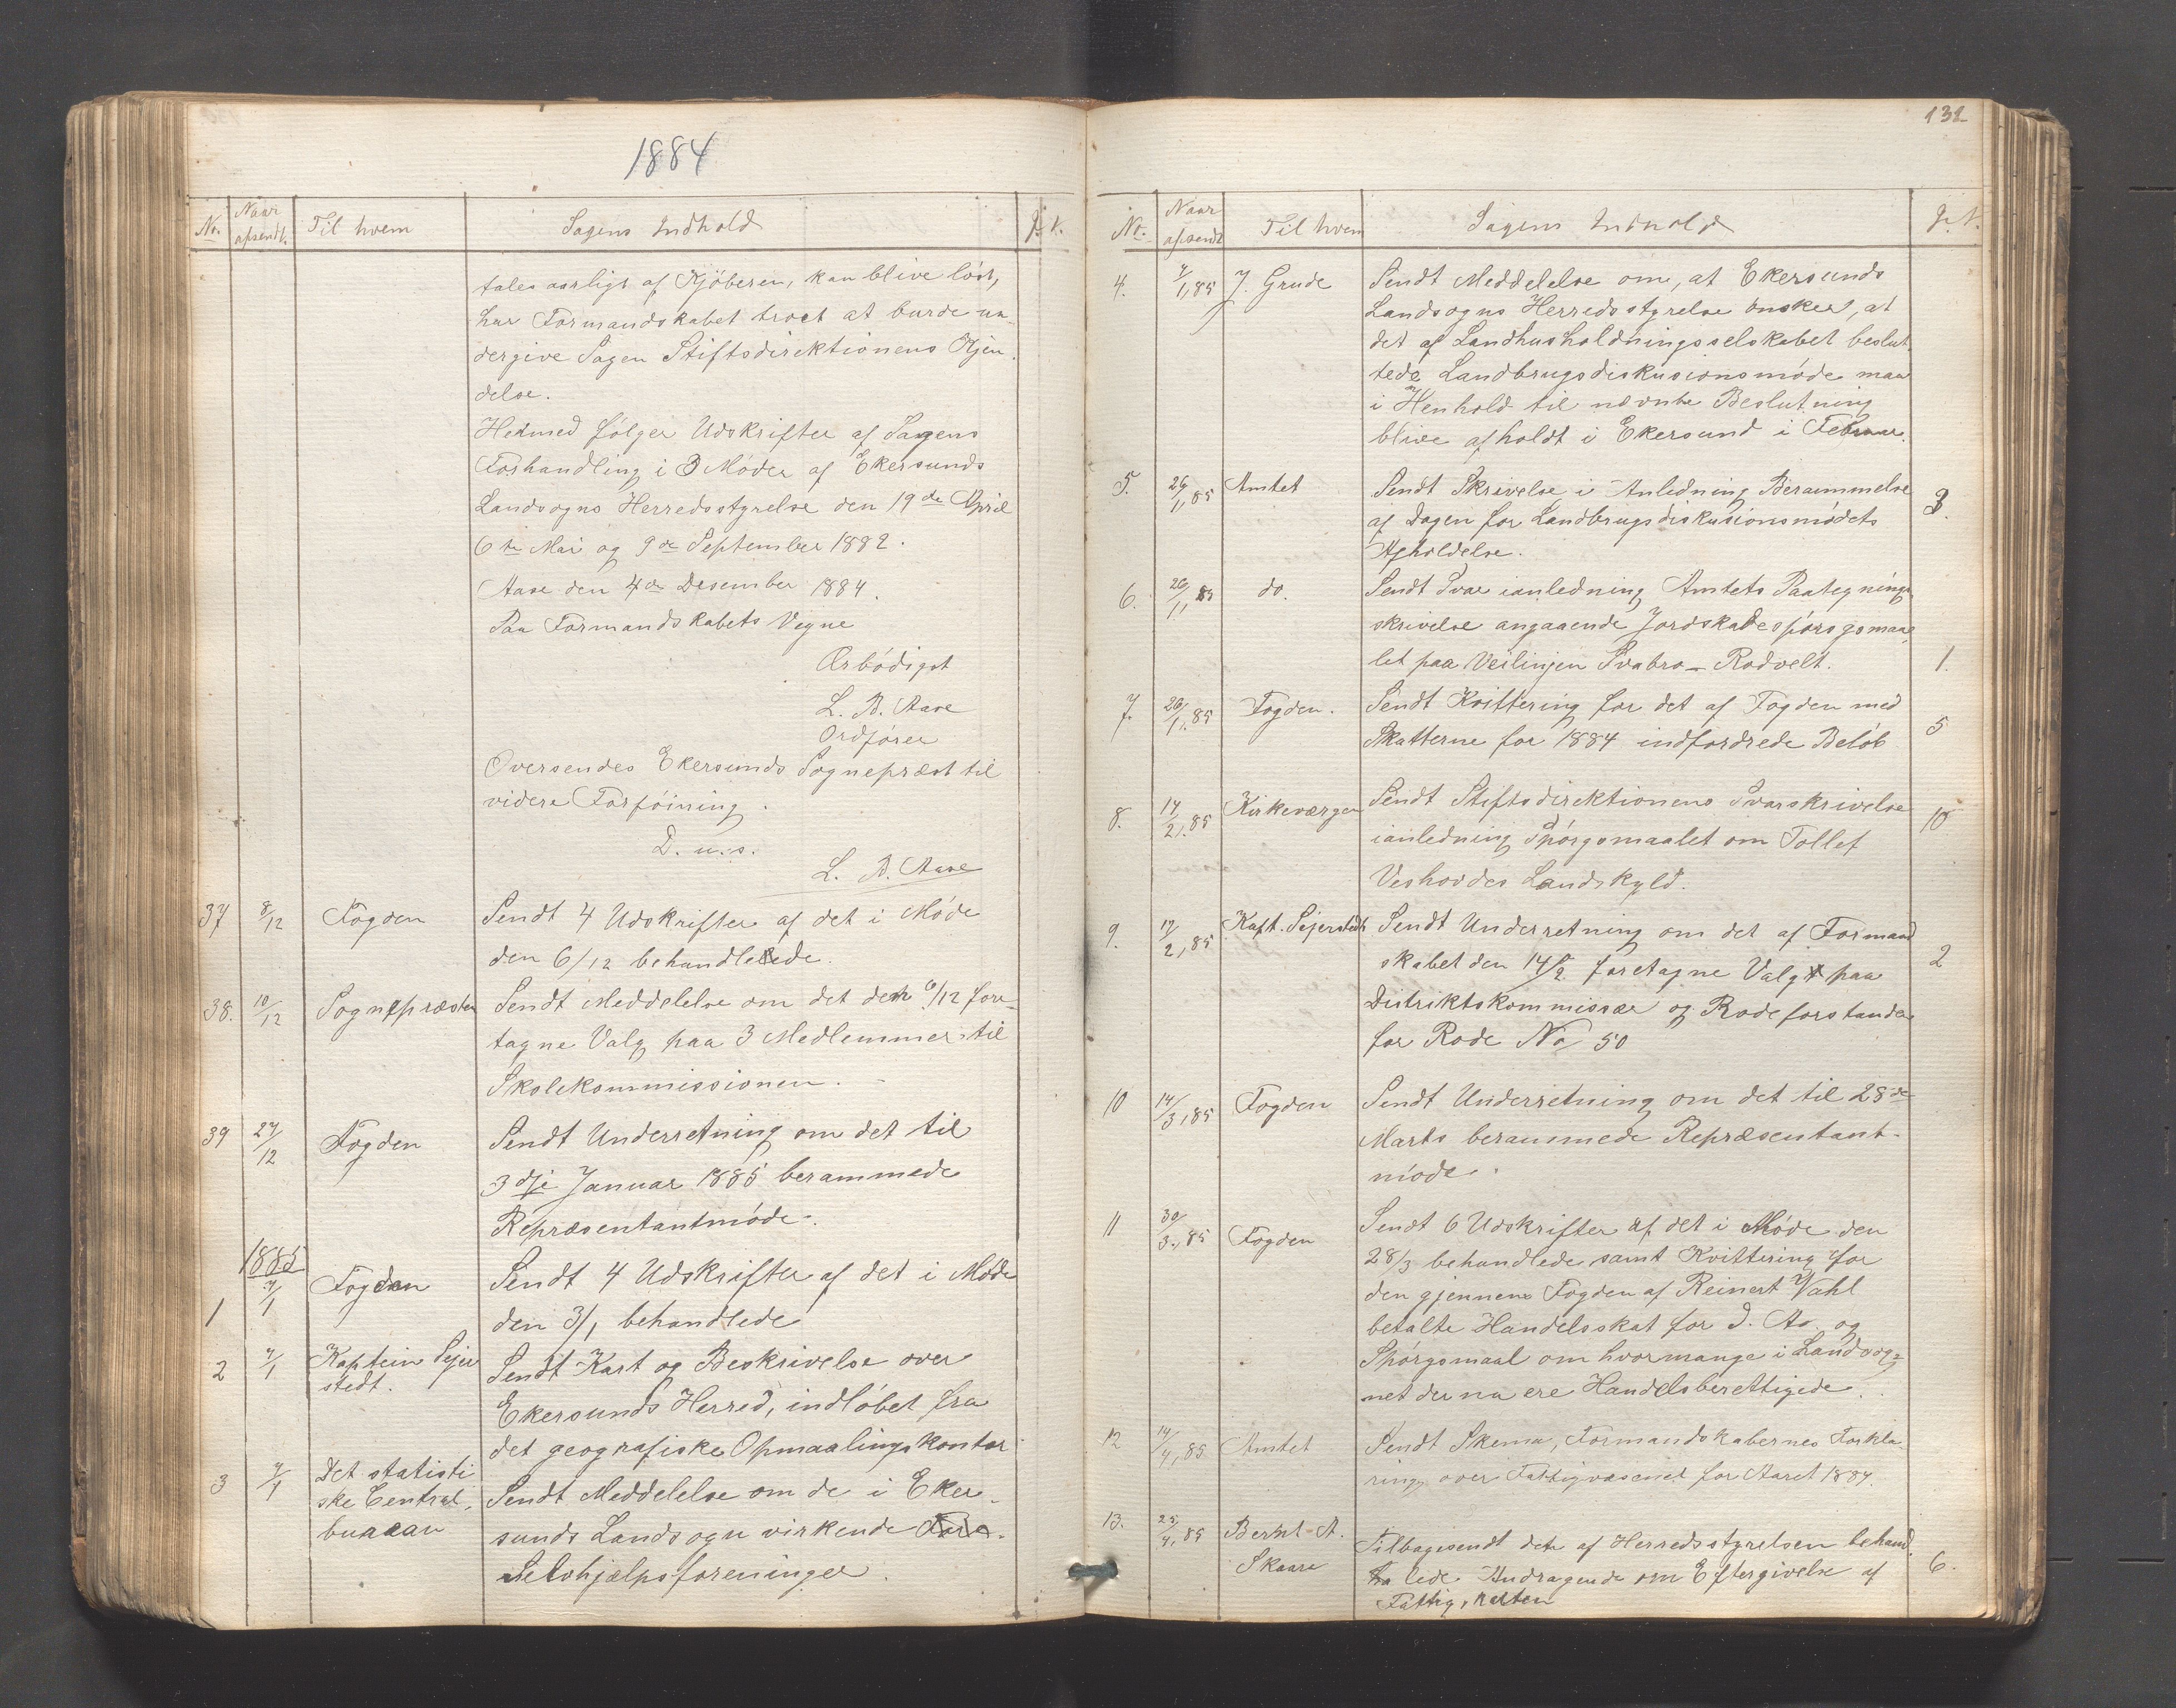 1884
No. Naar afsendt. Til hvem Sagens Indhold J. N.
tales aarligt af Kjöberen, kan blive löst,
har Formandskabet troet at burde un-
dergive Sagen Stiftsdirektionens Kjen-
delse.
Hermed fölger Udskrifter af Sagens
Forhandling i 3 Möder af Ekersunds
Landsogns Herredsstyrelse den 19de April
6te Mai og 9de September 1882.
Aase den 4de Desember 1884.
Paa Formandskabets Vegne
Ærbödigst
L. B. Aase
Ordförer
Oversendes Ekersunds Sognepræst til
videre Forföining.
D. u. s.
L. B. Aase
37 8/12 Fogden Sendt 4 Udskrifter af det i Möde
den 6/12 behandlede.
38. 10/12 Sognepræsten Sendt Meddelelse om det den 6/12 fore-
tagne Valg paa 3 Medlemmer til
Skolekommissionen.
39 27/12 Fogden Sendt Underretning om det til
3dje Januar 1885 berammede
Repræsentantmöde.
1885
1 7/1 Fogden Sendt 4 Udskrifter af det i Möde
den 3/1 behandlede
2 7/1 Kaptein Sejer
stedt. Sendt Kart og Beskrivelse over
Ekersunds Herred, indlöbet fra
det geografiske Opmaalingskontor
3 7/1 Det statisti
ske Central, Sendt Meddelelse om de i Eker-
buaeau sunds Landsogn virkende Fore-
Selvhjælpsforeninger.
132
No. Naar afsendt Til hvem Sagens Indhold J. N.
4. 7/1, 85 J. Grude Sendt Meddelelse om, at Ekersunds
Landsogns Herredsstyrelse önsker, at
det af Landhusholdningsselskabet beslut-
tede Landbrugsdiskusionsmöde maa
i Henhold til nævnte Beslutning
blive afholdt i Ekersund i Februar.
5. 26/1, 85 Amtet Sendt Skrivelse i Anledning Berammelse 3.
af Dagen for Landbrugsdiskusionsmödets
Afholdelse.
6. 26/1, 85 do. Sendt Svar ianledning Amtets Paategnings
skrivelse angaaende Jordskadespörsgsmaa-
let paa Veilinjen Svabro - Rodvelt. 1.
7. 26/1. 85 Fogden. Sendt Kvittering for det af Fogden med
Skatterne for 1884 indfordrede Belöb 5
8. 14/2. 85 Kirkeværgen Sendt Stiftsdirektionens Svarskrivelse 10
ianledning Spörgsmaalet om Tollef
Veshovdes Landskyld.
9. 17/2, 85 Kapt. Sejerstedt Sendt Underretning om det af Formand
skabet den 14/2 foretagne Valg paa 2
Distriktskommissær og Rodeforstander
for Rode No 50
10 14/3, 85 Fogden Sendt Underretning om det til 28de
Marts berammede Repræsentant-
möde.
11 30/3., 85 Fogden Sendt 6 Udskrifter af det i Möde den
28/3 behandlede samt Kvittering for
den gjennem Fogden af Reinert Vahl
betalte Handelsskat for d. Aa. og
Spörgsmaal om hvormange i Landsog-
net der nu ere Handelsberettigede.
12 14/4, 85 Amtet Sendt Skema, Formandskabernes Forkla-
ring over Fattigvæsenet for Aaret 1884.
13. 25/4, 85 Bernt A. Tilbagesendt det af Herredsstyrelsen behand-
Skaare lede Andragende om Eftergivelse af 6.
Fattigskatten